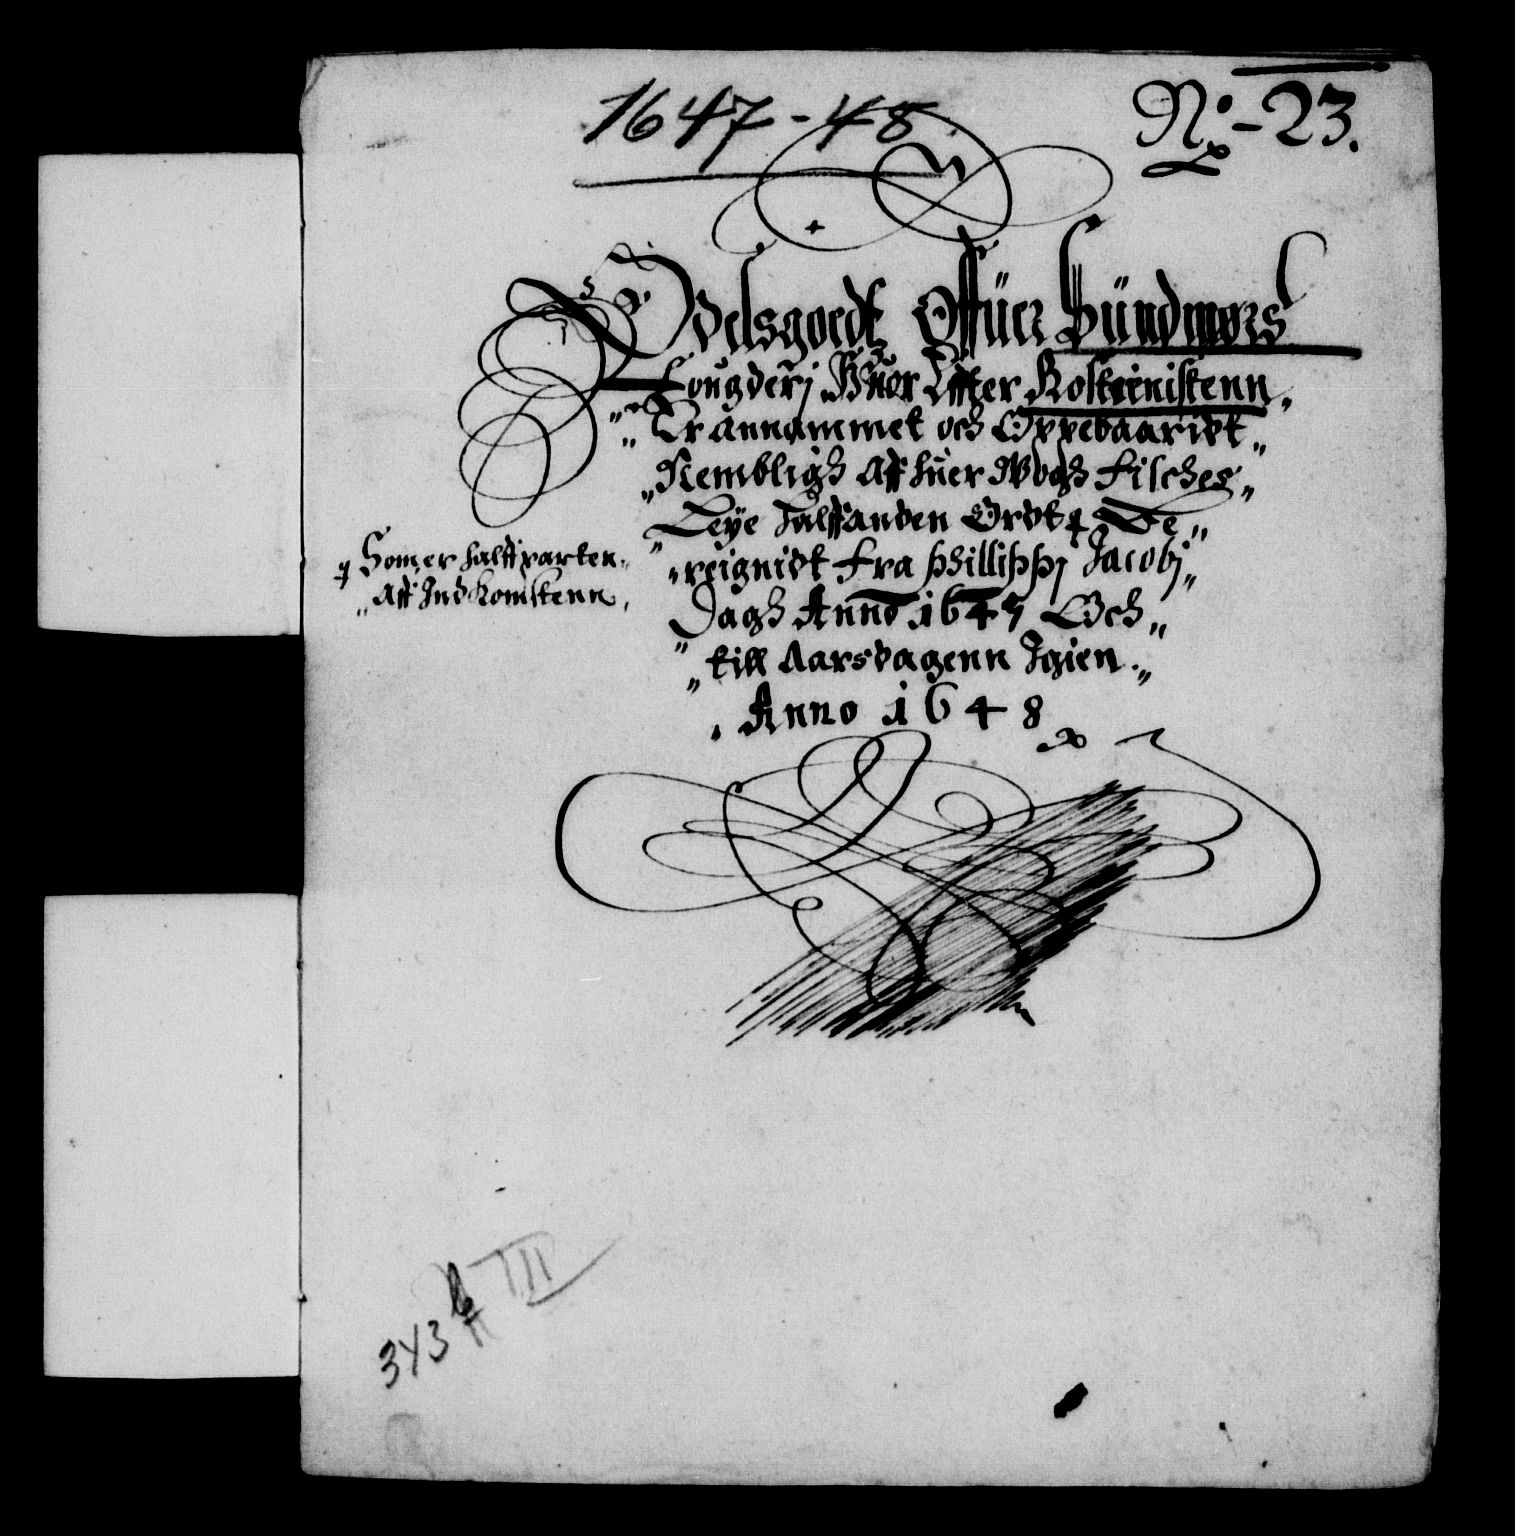 1647-48.
No. 23.
Odelsgoedtz Offuer Sündmørs
Fougderj Huor Effter Rostienistenn
Er annammet och Oppebaaridt
Nembligh Aff huer Wogh Fisches
Leye halffanden Ordt Be¬
reignidt Fra Phillippj Jacobj
Dagh Anno 1647 Och
till Aarsdagenn Igien
Anno 1648
Som er halffparten
Aff Indkomstenn
343 b
III